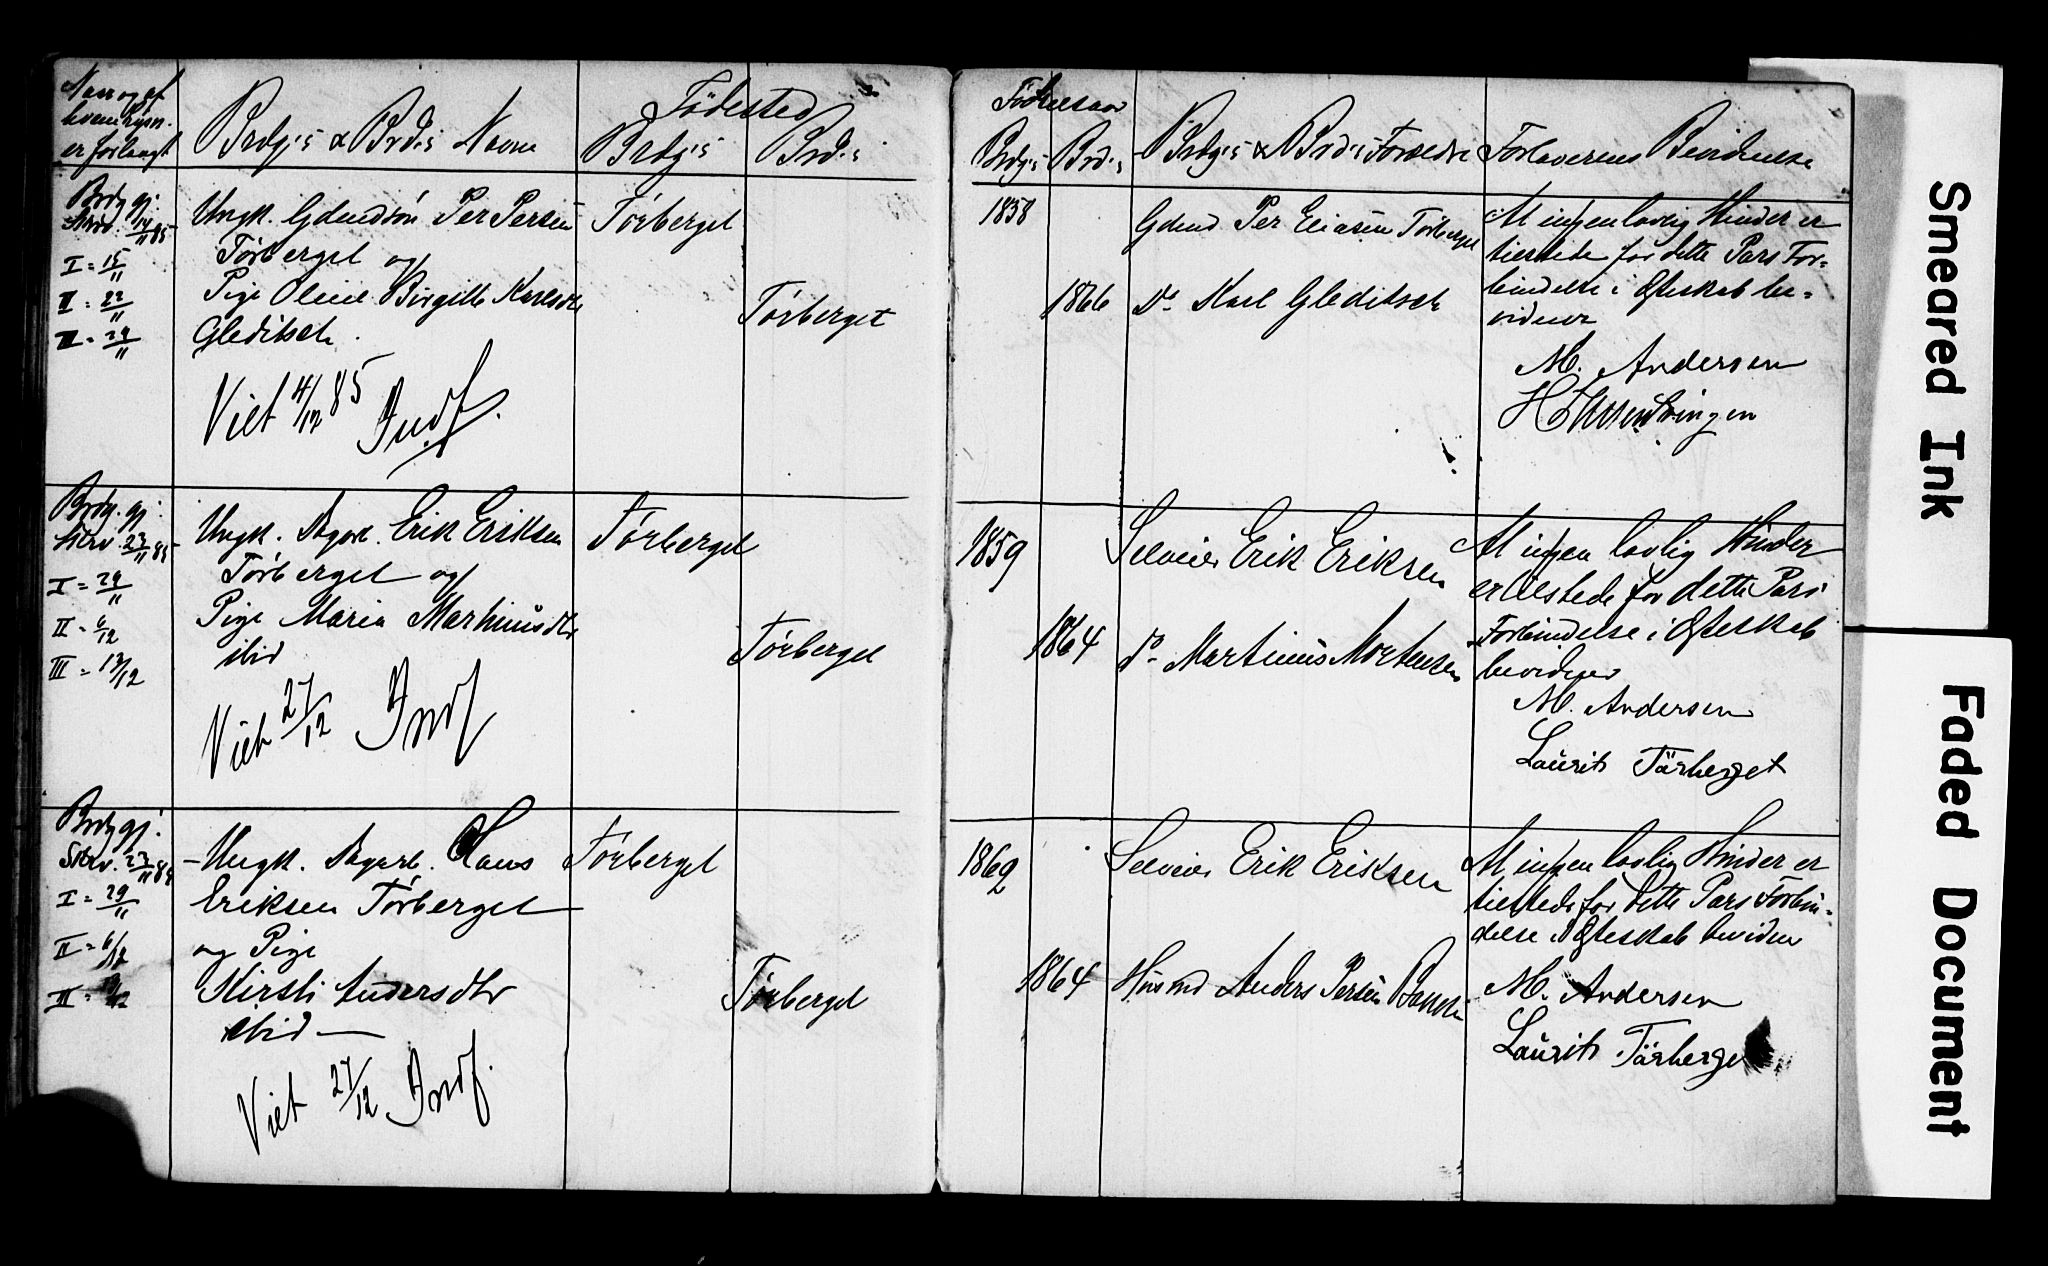 Naar og af
hvem Lysn.
er forlangt
Brdg.s & Brd.s Navne
Fødested
Brdg.s
Brd.s
Fødselsaar
Brdg.s
Brd.s
Brdg.s & Brd.s Forældre
Forloverens Bevidnelse
Brdg. gj.
Skrv. 14/11 85
I = 15/11
II = 22/11
III = 29/11
Ungk. Gdmdsøn Per Persen
Törberget og
Pige Oline Birgitte Karlsdtr
Gleditsch.
Viet 4/12 85
Törberget
Törberget
1858
1866
Gdmd Per Eliasen Törberget
Do Karl Gleditsch
At ingen lovlig Hinder er
tilstede for dette Pars For-
bindelse i Ægteskab be-
vidner
M. Andersen
Brdg. gj.
Skrv. 23/11 85
I = 29/11
II = 6/12
III = 13/12
Ungk. Dagarb. Erik Eriksen
Törberget og
Pige Maria Martinusdtr
ibid
Viet 27/12
Törberget
Törberget
1859
1864
Selveier Erik Eriksen
Do Martinus Mortensen
At ingen lovlig Hinder
er tilstede for dette Pars
Forbindelse i Ægteskab
bevidner
M. Andersen
Laurits Törberget
Brdg gj.
Skrv. 23/11 85
I = 29/11
II = 6/12
III =
Ungk. Dagarb. Hans
Eriksen Törberget
og Pige
Kirsti Andersdtr
ibid
Viet 27/12
Törberget
Törberget
1862
1864
Selveier Erik Eriksen
Husmd Anders Persen
At ingen lovlig Hinder er
tilstede for dette Pars Forbin-
delse i Ægteskab bevidner
M. Andersen
Laurits Törberget
Smeared Ink
Faded Document